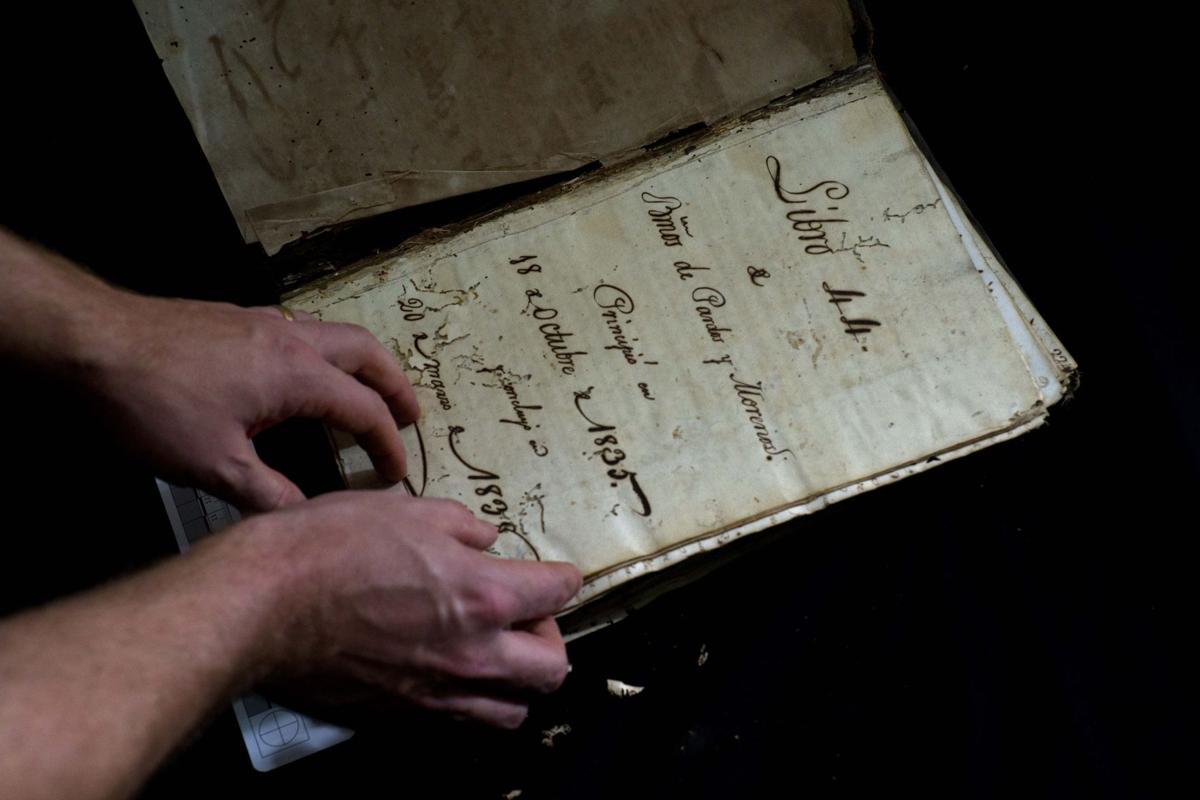 Libro 44.
de
Bmos de Pardos y Morenos.
Principió en
18 de Octubre de 1835.
y concluyó en
20 de marzo de